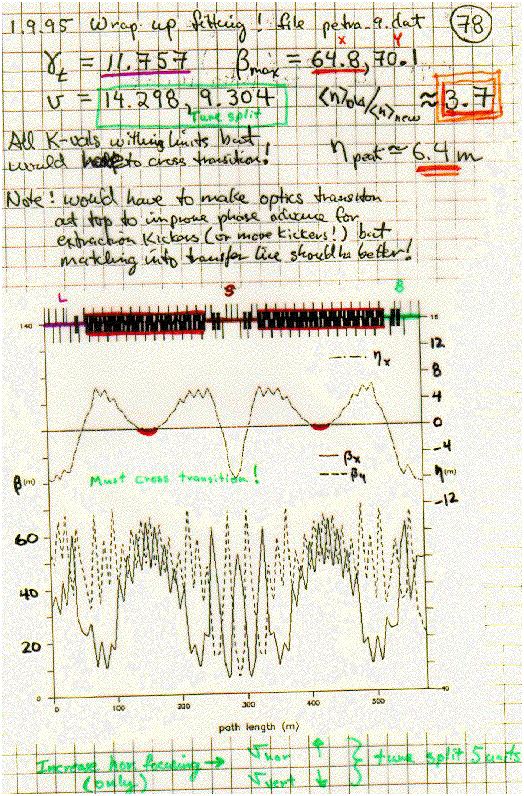 1.9.95 Wrap up fitting! file petra_9.dat 78
γt = 11.757 βmax = 64.8, 70.1
x y
ν = 14.298, 9.304 <η>old/<η>new ≈ 3.7
Tune split
All K-vals within limits but
would to cross transition!
ηpeak ≃ 6.4 m
Note! would have to make optics transition
at top to improve phase advance for
extraction kickers (or more kickers!) but
matching into transfer line should be better!
L S 8
140 16
12
ηx
8
4
0
-4
βx
βy
β(m) η(m)
Must cross transition!
-12
60
40
20
0 40
0 100 200 300 400 500
path length (m)
Increase hor focusing → νhor ↑ } tune split 5 units
(only) νvert ↓